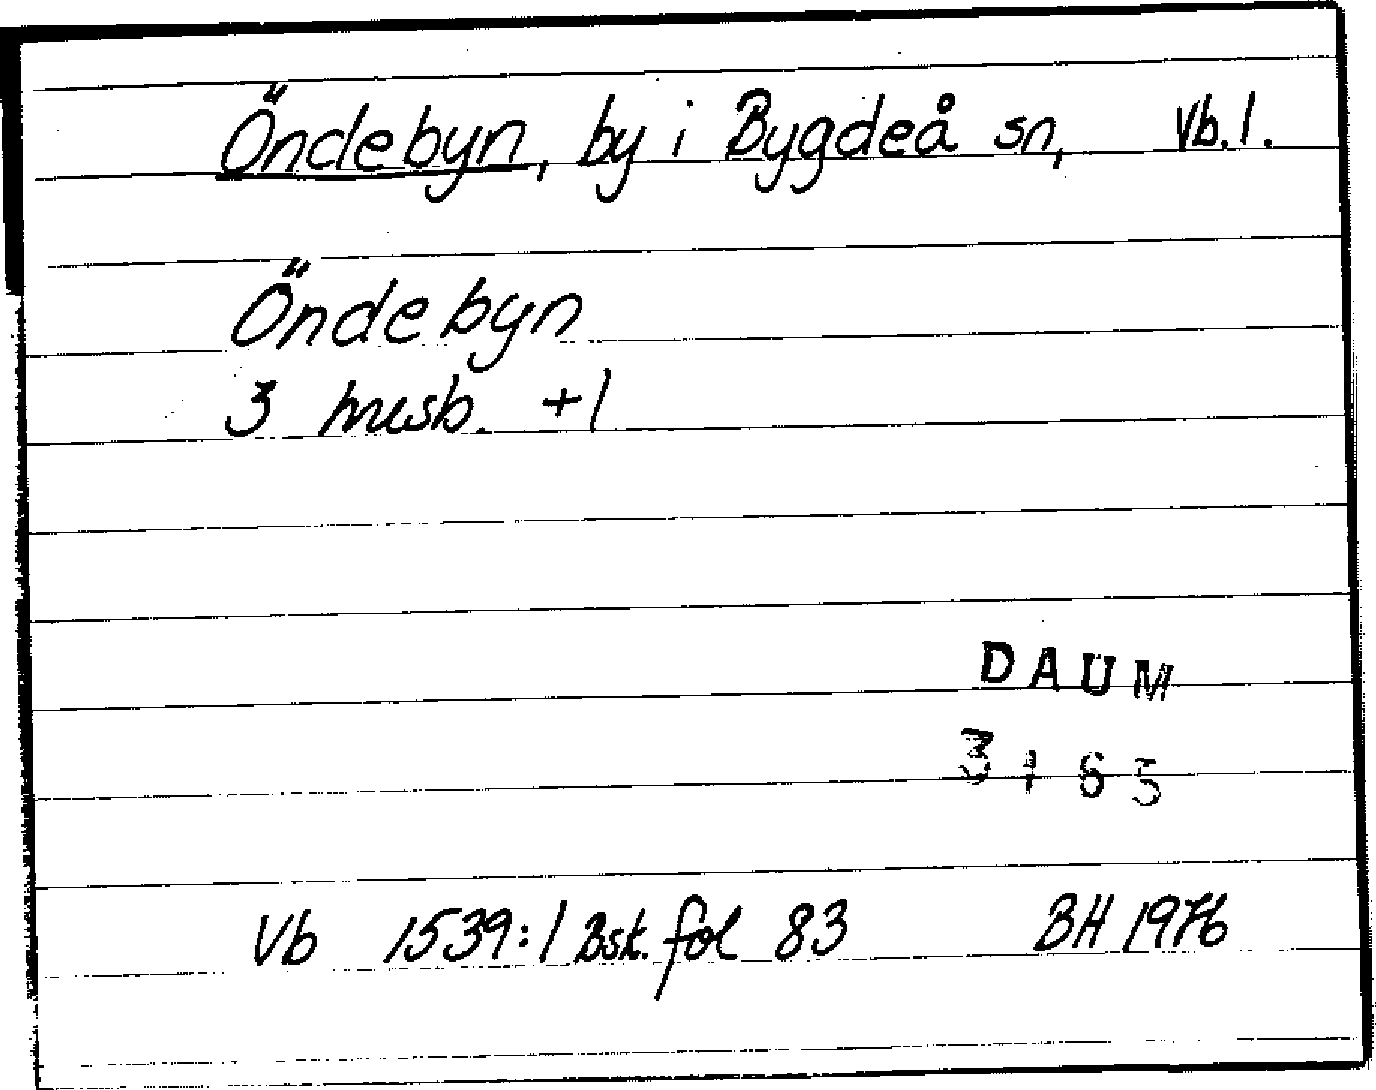 Öndebyn, by i Bygdeå sn, Vb. l.
Öndebyn
3 husb. +1
DAUM
3765
Vb 1539:1 Bsk. fol 83 BH 1976